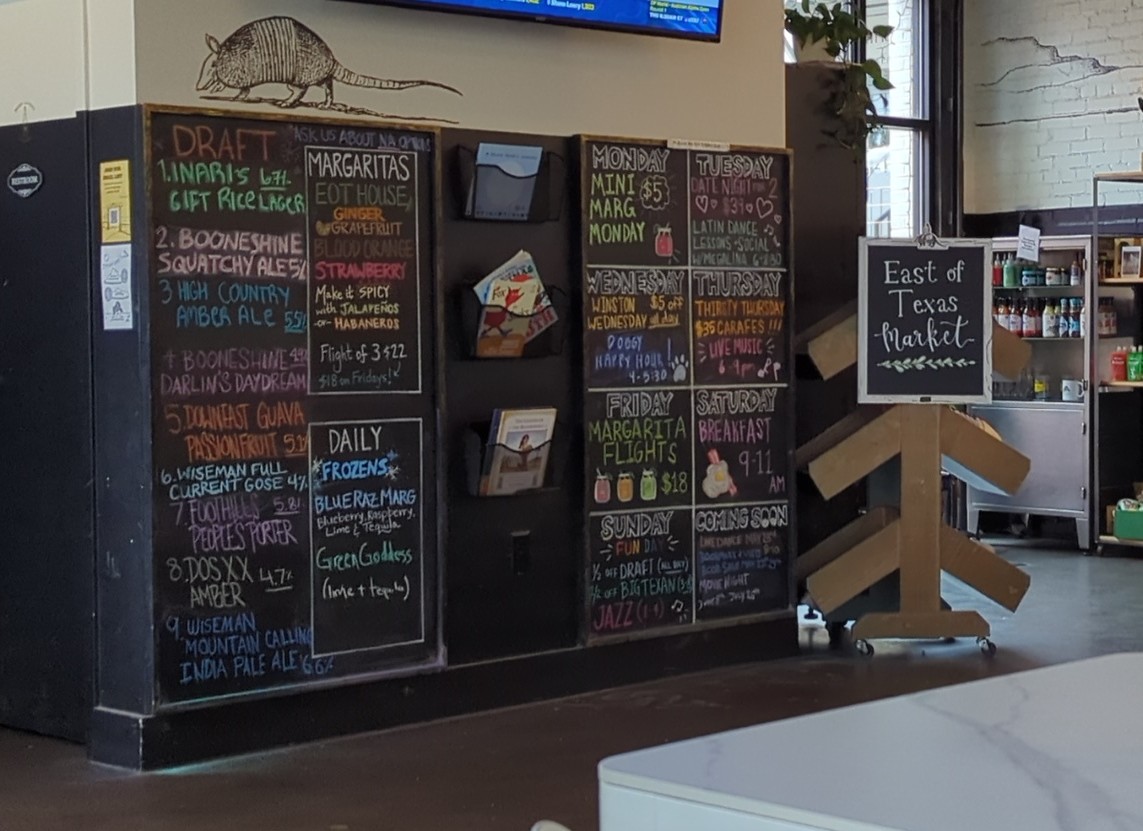 DRAFT
ASK US ABOUT NA OPTIONS
1. INARI'S 6.7%
GIFT RICE LAGER
2. BOONESHINE
SQUATCHY ALE 5%
3 HIGH COUNTRY
AMBER ALE 5.5%
4. BOONESHINE
DARLIN'S DAYDREAM
5. DOWNEAST GUAVA
PASSIONFRUIT
6. WISEMAN FULL
CURRENT GOSE 4%
7. FOOTHILLS 5.8%
PEOPLES PORTER
8. DOS XX 4.7%
AMBER
9. WISEMAN
MOUNTAIN CALLING
INDIA PALE ALE 6.6%
MARGARITAS
EOT HOUSE,
GINGER
GRAPEFRUIT
BLOOD ORANGE
STRAWBERRY
Make it SPICY
with JALAPEÑOS
-or- HABANEROS
Flight of 3 $22
$18 on Fridays!
DAILY
FROZENS
BLUE RAZ MARG
Blueberry, Raspberry,
Lime & Tequila
Green Goddess
(lime + tequila)
MONDAY
MINI $5
MARG
MONDAY
TUESDAY
DATE NIGHT FOR 2
$39
LATIN DANCE
LESSONS + SOCIAL
WEDNESDAY
WINSTON $5 off
WEDNESDAY all day
DOGGY
HAPPY HOUR!
4-5:30
THURSDAY
THIRSTY THURSDAY
$35 CARAFES !!!
LIVE MUSIC
6-9pm
FRIDAY
MARGARITA
FLIGHTS
$18
SATURDAY
BREAKFAST
9-11
AM
SUNDAY
FUN DAY
½ OFF DRAFT (ALL DAY)
½ OFF BIG TEXAN
JAZZ
COMING SOON
MOVIE NIGHT
East of
Texas
Market
RESTROOM